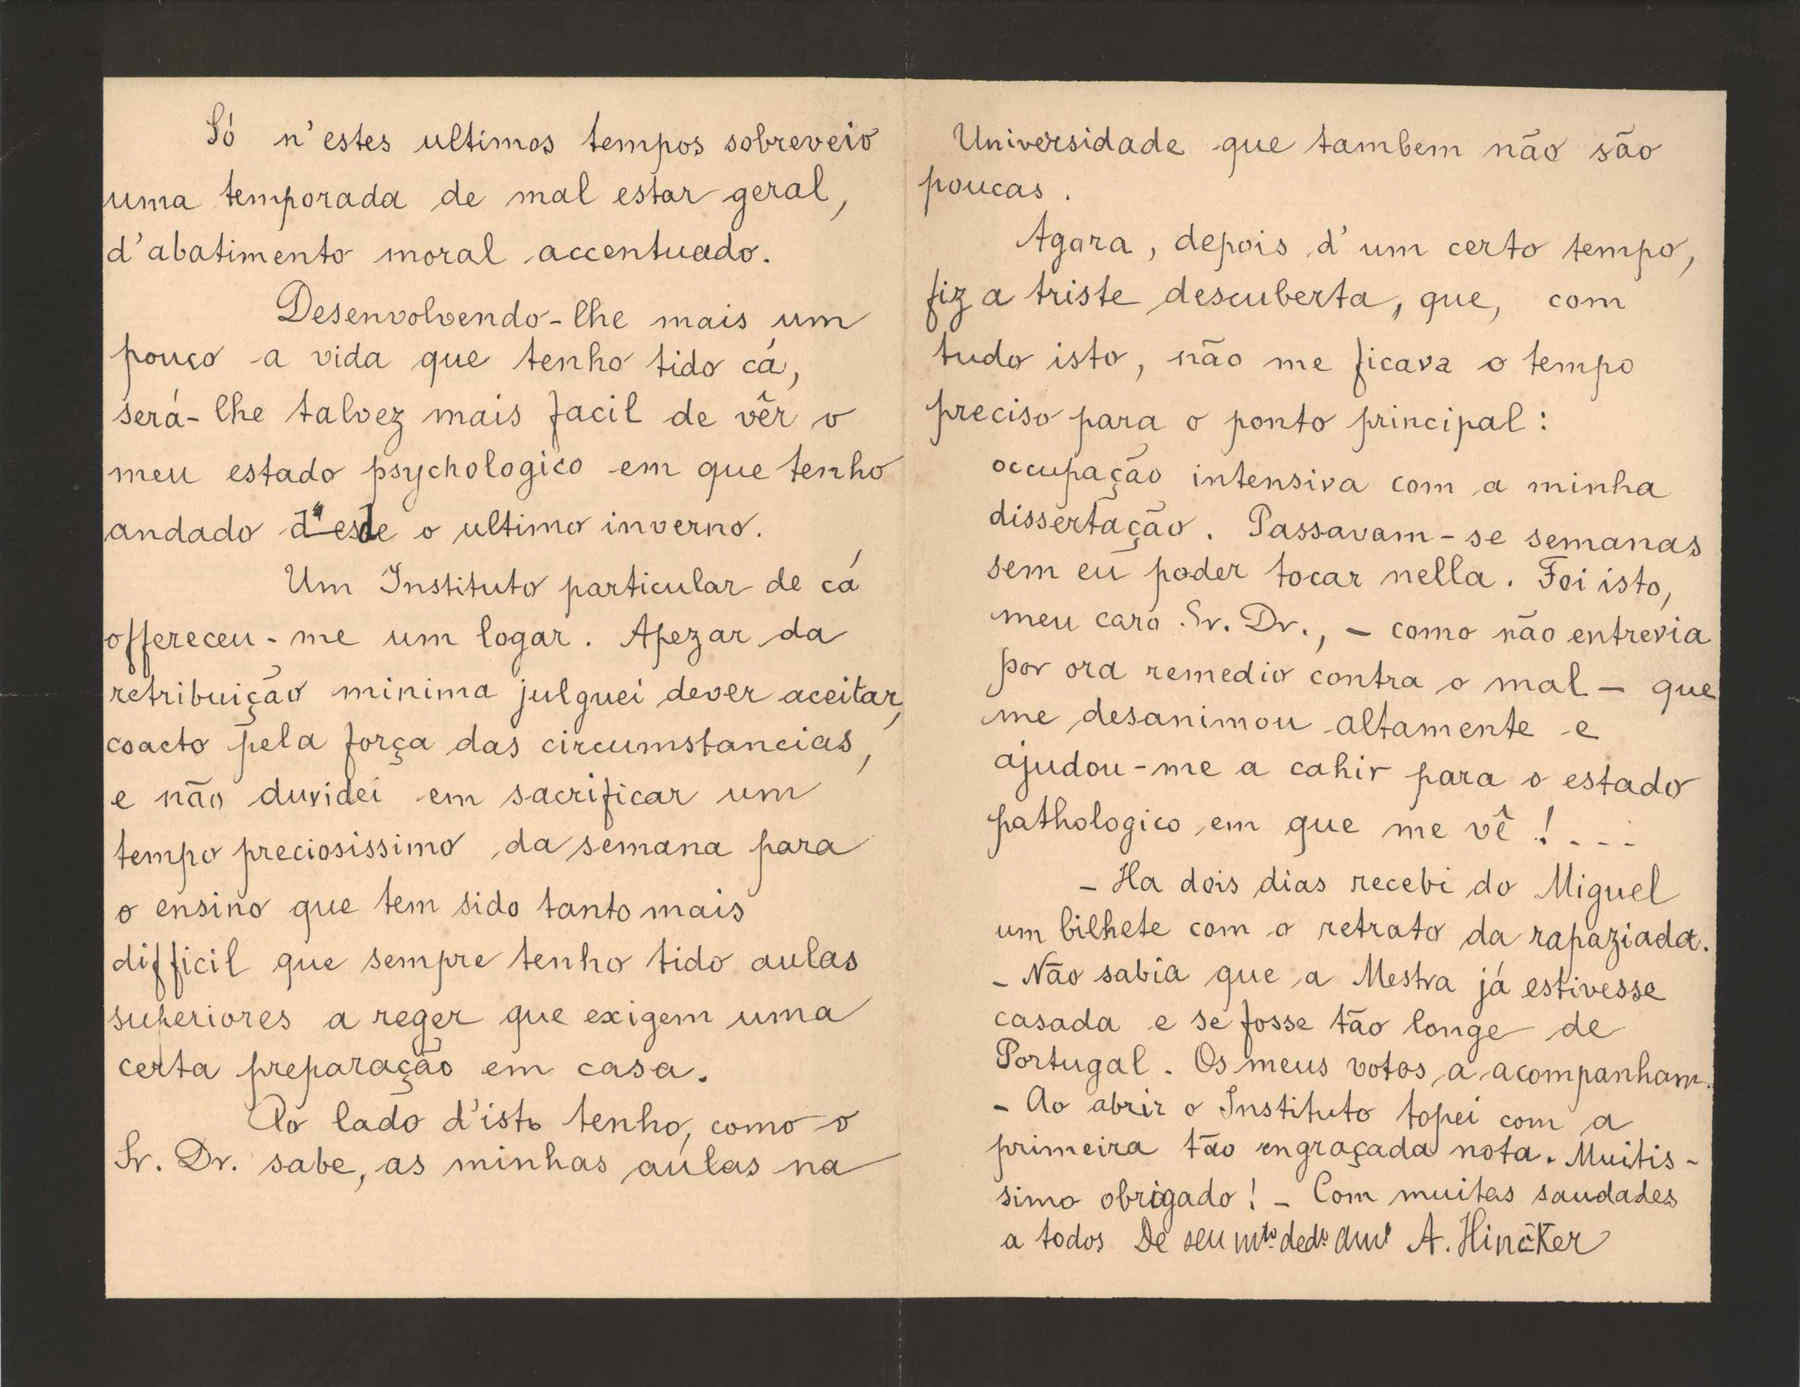 Só n'estes ultimos tempos sobreveio
uma temporada de mal estar geral,
d'abatimento moral accentuado.
Desenvolvendo-lhe mais um
pouco a vida que tenho tido cá,
será-lhe talvez mais facil de vêr o
meu estado psychologico em que tenho
andado desde o ultimo inverno.
Um Instituto particular de cá
offereceu-me um logar. Apezar da
retribuição minima julguei dever aceitar,
coacto pela força das circumstancias,
e não duvidei em sacrificar um
tempo preciosissimo da semana para
o ensino que tem sido tanto mais
difficil que sempre tenho tido aulas
superiores a reger que exigem uma
certa preparação em casa.
Ao lado d'isto tenho, como o
Sr. Dr. sabe, as minhas aulas na
Universidade que tambem não são
poucas.
Agora, depois d'um certo tempo,
fiz a triste descuberta, que, com
tudo isto, não me ficava o tempo
preciso para o ponto principal:
occupação intensiva com a minha
dissertação. Passavam-se semanas
sem eu poder tocar nella. Foi isto,
meu caro Sr. Dr., – como não entrevia
por ora remedio contra o mal – que
me desanimou altamente e
ajudou-me a cahir para o estado
pathologico em que me vê!...
– Ha dois dias recebi do Miguel
um bilhete com o retrato da rapaziada.
– Não sabia que a Mestra já estivesse
casada e se fosse tão longe de
Portugal. Os meus votos a acompanham.
– Ao abrir o Instituto topei com a
primeira tão engraçada nota. Muitis-
simo obrigado! – Com muitas saudades
a todos De seu mto. dedo. amo A. Hincker